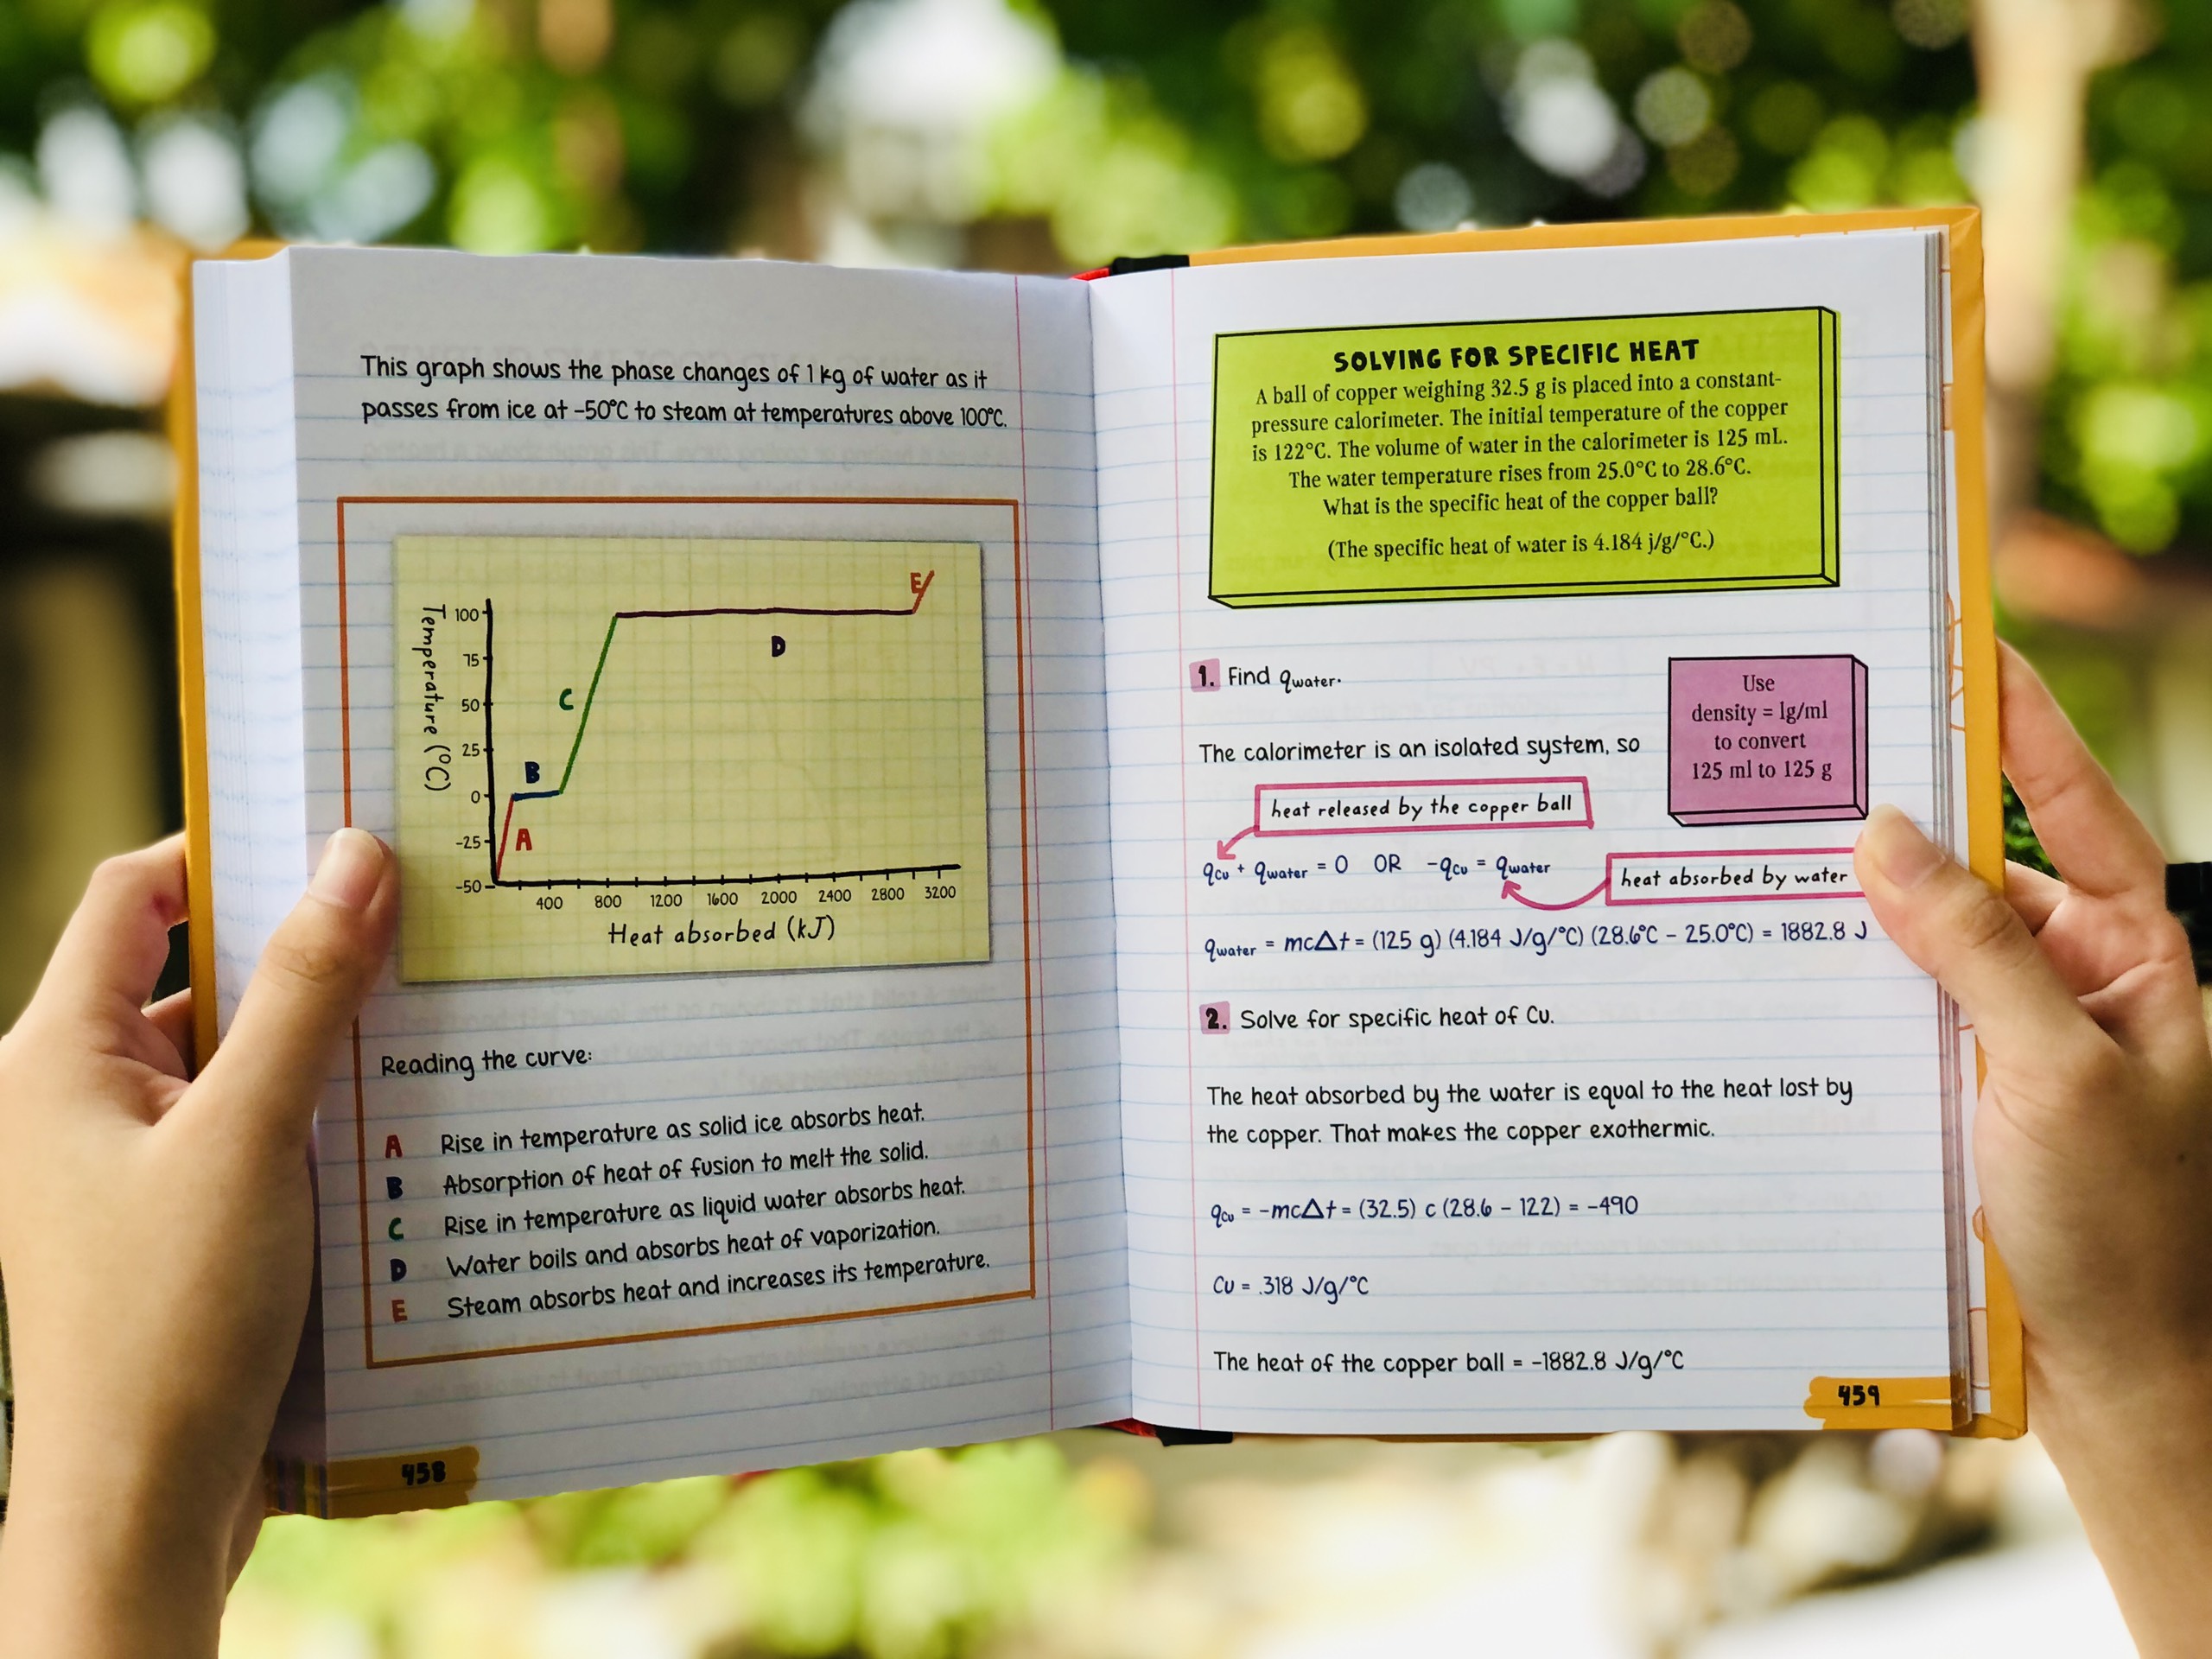 This graph shows the phase changes of 1 kg of water as it
passes from ice at -50°C to steam at temperatures above 100°C.
Temperature (°C)
100
75
50
25
0
-25
-50
A
B
C
D
E
400 800 1200 1600 2000 2400 2800 3200
Heat absorbed (kJ)
Reading the curve:
A Rise in temperature as solid ice absorbs heat.
B Absorption of heat of fusion to melt the solid.
C Rise in temperature as liquid water absorbs heat.
D Water boils and absorbs heat of vaporization.
E Steam absorbs heat and increases its temperature.
458
SOLVING FOR SPECIFIC HEAT
A ball of copper weighing 32.5 g is placed into a constant-
pressure calorimeter. The initial temperature of the copper
is 122°C. The volume of water in the calorimeter is 125 mL.
The water temperature rises from 25.0°C to 28.6°C.
What is the specific heat of the copper ball?
(The specific heat of water is 4.184 j/g/°C.)
1. Find qwater.
Use
density = 1g/ml
to convert
125 ml to 125 g
The calorimeter is an isolated system, so
heat released by the copper ball
qcu + qwater = 0 OR -qcu = qwater
heat absorbed by water
qwater = mc∆t = (125 g) (4.184 J/g/°C) (28.6°C - 25.0°C) = 1882.8 J
2. Solve for specific heat of Cu.
The heat absorbed by the water is equal to the heat lost by
the copper. That makes the copper exothermic.
qcu = -mc∆t = (32.5) c (28.6 - 122) = -490
Cu = .318 J/g/°C
The heat of the copper ball = -1882.8 J/g/°C
459